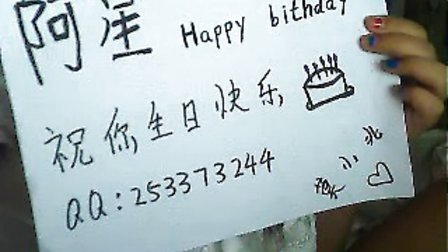 阿星 Happy bithday
祝你生日快乐
QQ:253373244